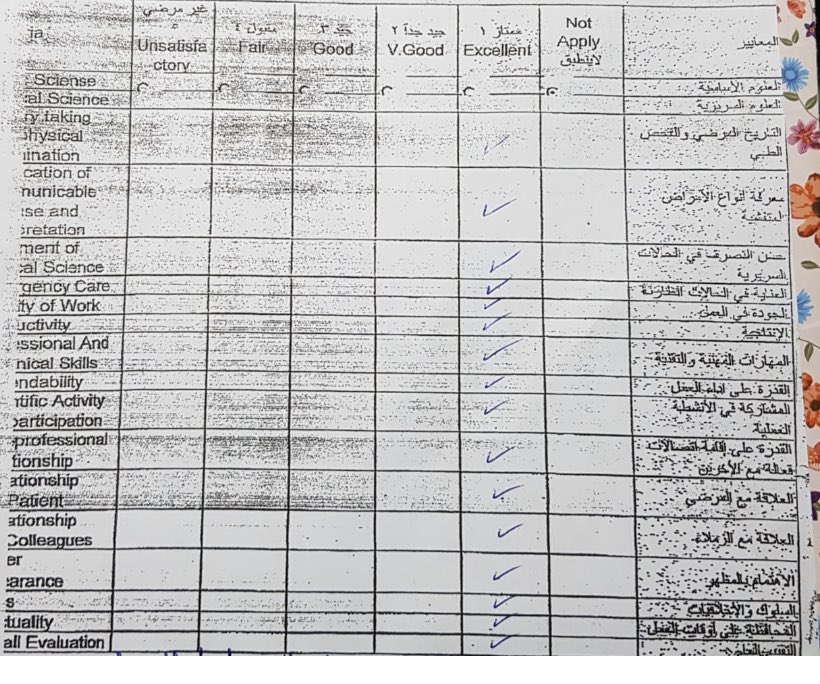 غير مرضي ٥
Unsatisfactory
مقبول ٤
Fair
جيد ٣
Good
جيد جداً ٢
V.Good
ممتاز ١
Excellent
Not
Apply
لاينطبق
المعايير
Sciense
العلوم الأساسية
al Science
العلوم السريرية
ry taking
hysical
ination
التاريخ المرضي والفحص
الطبي
cation of
municable
se and
retation
معرفة أنواع الأمراض
المتفشية
ment of
cal Science
حسن التصرف في الحالات
السريرية
gency Care
العناية في الحالات الطارئة
ity of Work
الجودة في العمل
uctivity
الإنتاجية
ssional And
nical Skills
المهارات المهنية والتقنية
ndability
القدرة على اداء العمل
ntific Activity
participation
المشاركة في الأنشطة
العملية
professional
tionship
القدرة على إقامة اتصالات
فعالة مع الأخرين
ationship
Patient
العلاقة مع المرضي
ationship
Colleagues
العلاقة مع الزملاء
er
arance
الاهتمام بالمظهر
s
السلوك والأخلاقيات
tuality
المحافظة على أوقات العمل
all Evaluation